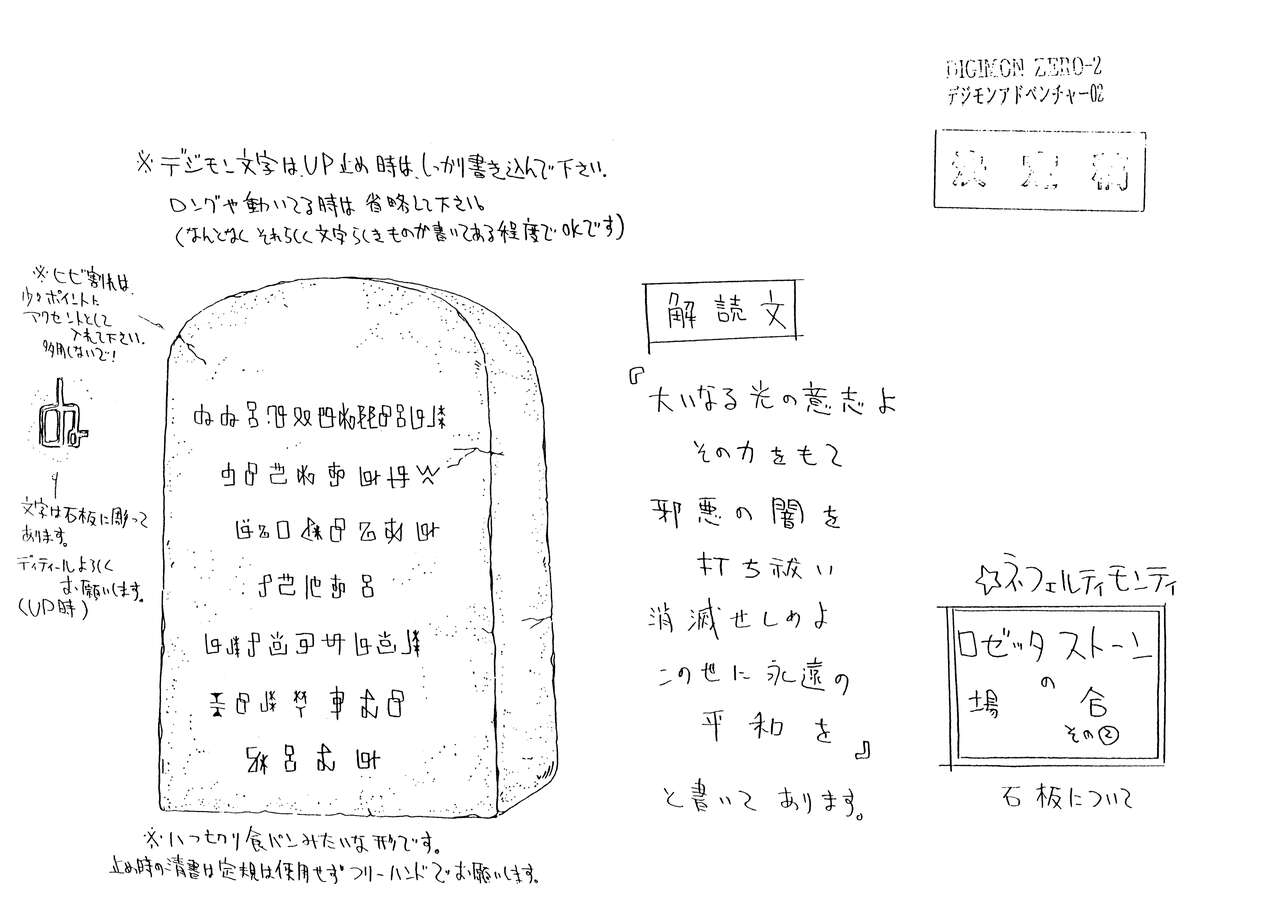 DIGIMON ZERO-2
デジモンアドベンチャー02
決定稿
※デジモン文字は、UP止め時は、しっかり書き込んで下さい。
ロングや動いてる時は省略して下さい。
(なんとなくそれらしく文字らしきものが書いてある程度でOKです)
※ヒビ割れは、
少々ポイントに
アクセントとして
入れて下さい。
多用しないで!
文字は石板に彫って
あります。
ディティールよろしく
お願いします。
(UP時)
解読文
『大いなる光の意志よ
その力をもて
邪悪の闇を
打ち祓い
消滅せしめよ
この世に永遠の
平和を』
と書いてあります。
☆ネフェルティモンティ
ロゼッタストーン
の
場合
その②
石板について
※ハつ切り食パンみたいな形です。
止め時の清書は定規は使用せずフリーハンドでお願いします。